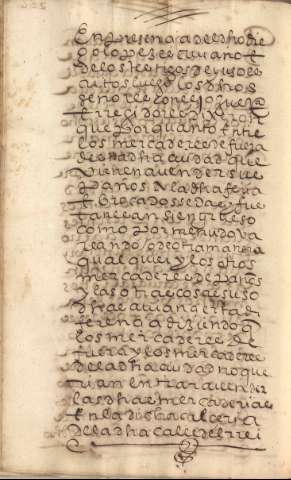 En presençia de dho die
go lopez escriuano e
de los testigos de yuso es
critos luego los dhos
señores conçejo juezes
e rregidores dixeron
que por quanto entre
los mercaderes de fuera
de esta dha çiudad que
vienen a vender sus
paños a la dha feria
e brocados sedas e fus
tanes ansi en grueso
como por menudo va
reando o de otra manera
qualquier y los otros
mercaderes de paños
y las otras cosas suso
dhas avian çierta di
ferençia diziendo q
los mercaderes de
fuera y los mercaderes
de la dha çiudad no que
rian entrar a vender
las dhas mercaderias
en la dicha alcaçeria
de la dha calle del rrei